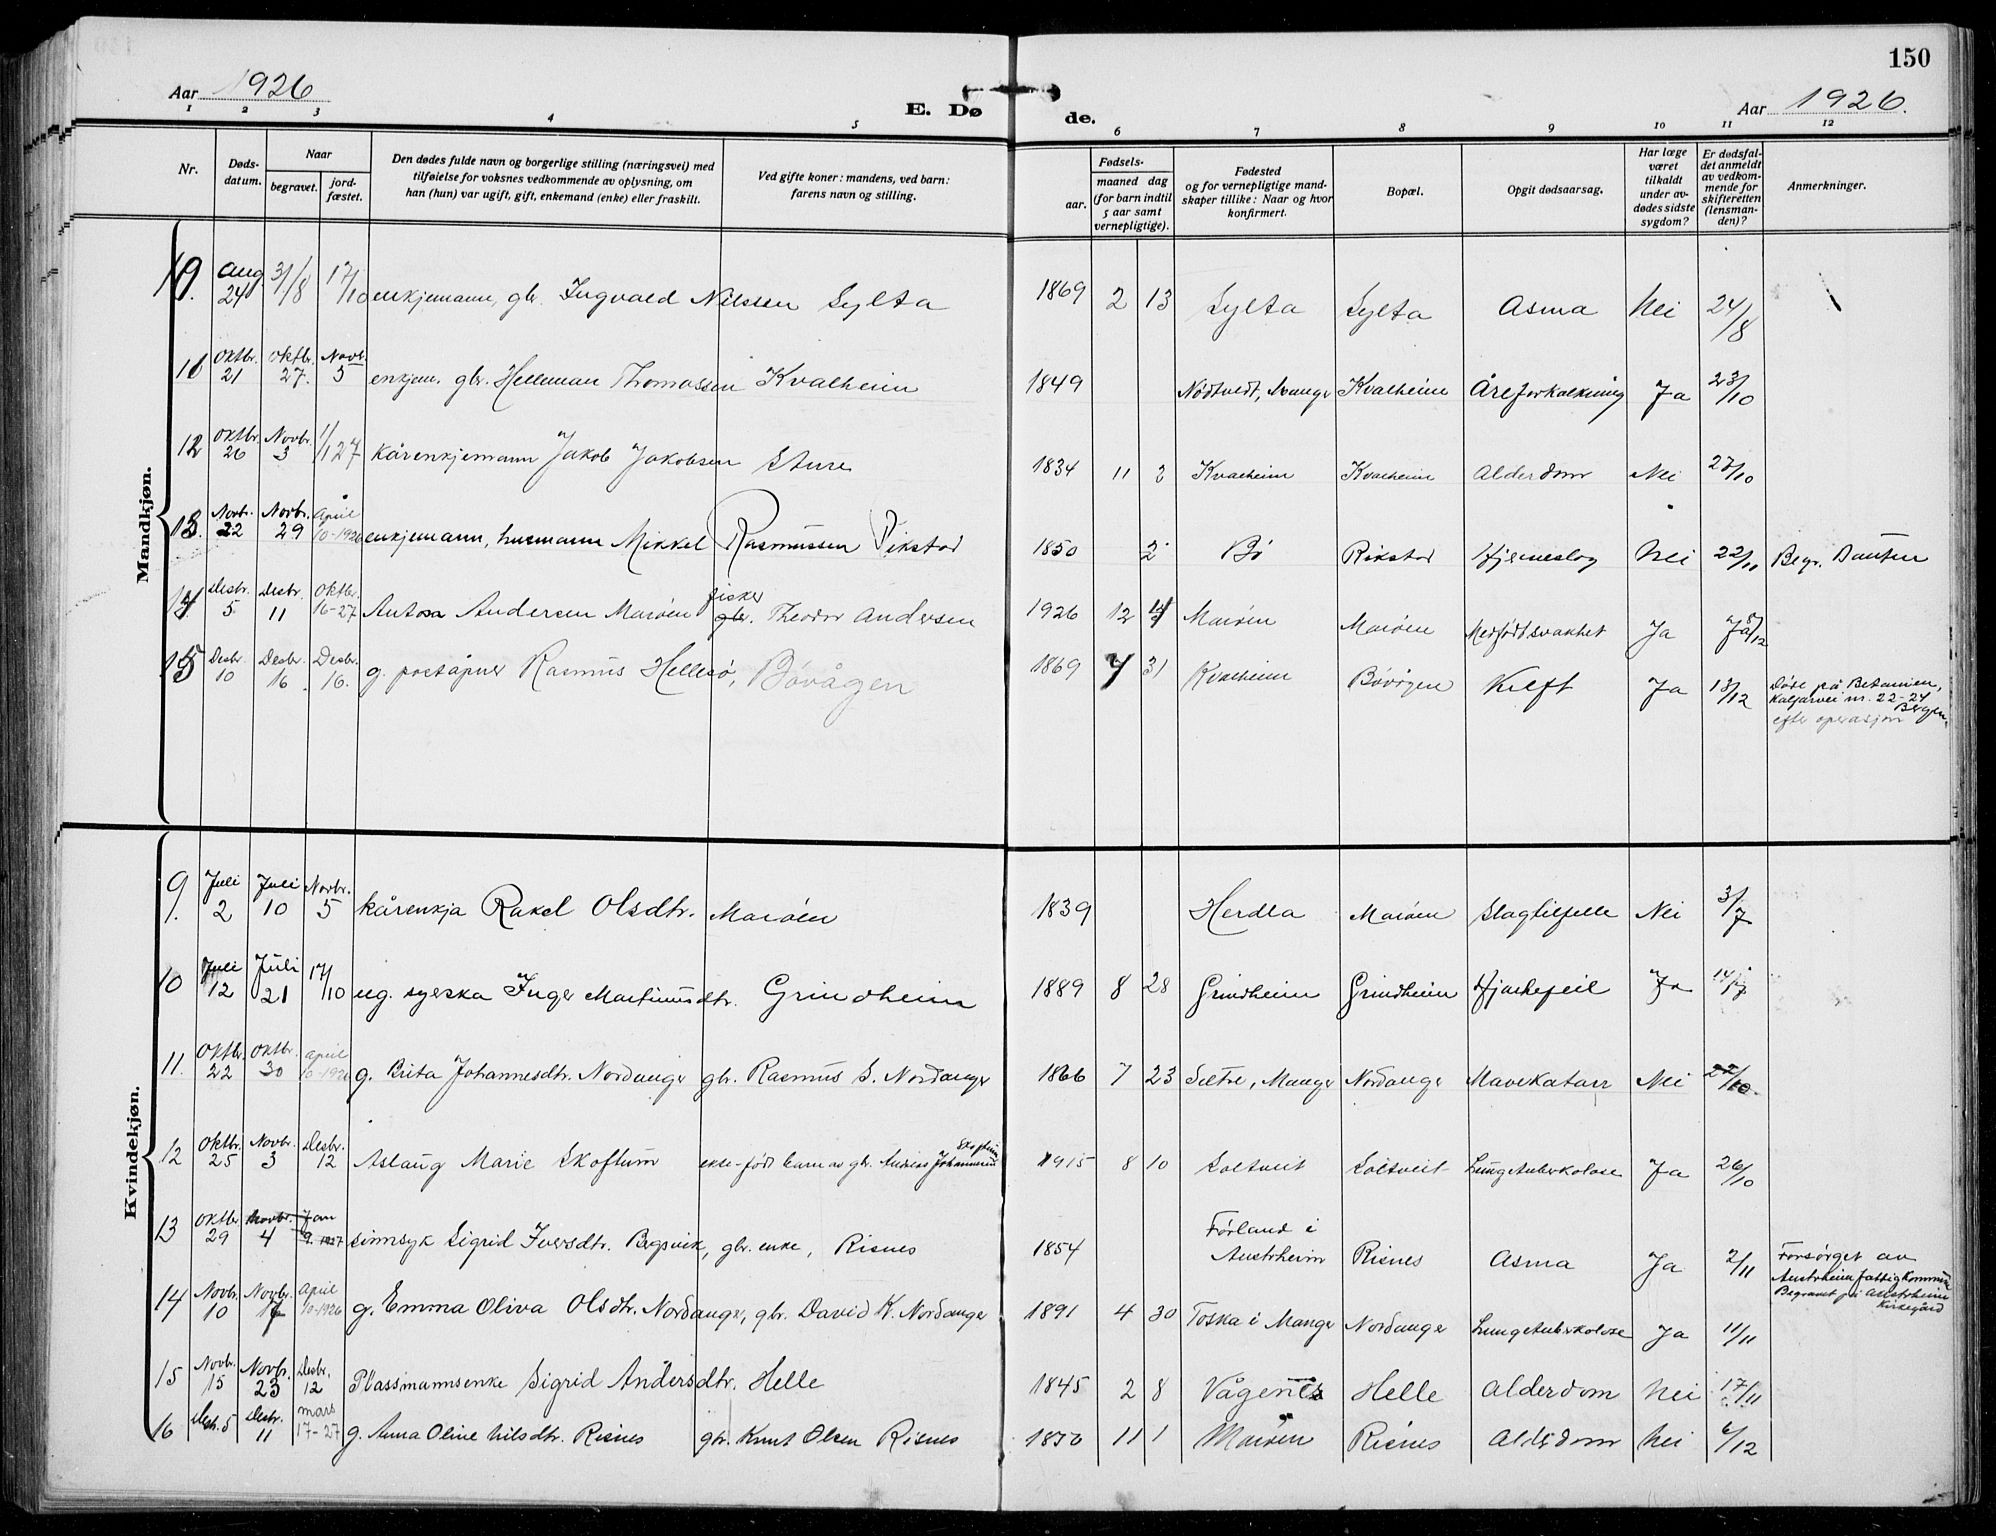 150
Aar 1926
E. Døde.
Aar 1926.
1 2 3 4 5 6 7 8 9 10 11 12
Nr.
Døds-
datum.
Naar
begravet.
jord-
fæstet.
Den dødes fulde navn og borgerlige stilling (næringsvei) med
tilføielse for voksnes vedkommende av oplysning, om
han (hun) var ugift, gift, enkemand (enke) eller fraskilt.
Ved gifte koner: mandens, ved barn:
farens navn og stilling.
Fødsels-
aar.
maaned dag
(for barn indtil
5 aar samt
vernepligtige).
Fødested
og for vernepligtige mand-
skaper tillike: Naar og hvor
konfirmert.
Bopæl.
Opgit dødsaarsag.
Har læge
været
tilkaldt
under av-
dødes sidste
sygdom?
Er dødsfal-
det anmeldt
av vedkom-
mende for
skifteretten
(lensman-
den)?
Anmerkninger.
Mandkjøn.
10. Aug 24 31/8 17/10 enkjemann, gbr. Ingvald Nilssen Sylta 1869 2 13 Sylta Sylta Asma Nei 24/8
11 Oktbr. 21 Oktbr. 27. Novbr. 5 enkjem. gbr. Helleman Thomassen Kvalheim 1849 Nødtvedt, Manger Kvalheim Åreforkalkning Ja 23/10
12 Oktbr. 26 Novbr. 3 1/1 27 kårenkjemann Jakob Jakobsen Sture 1834 11 2 Kvalheim Kvalheim Alderdom Nei 27/10
13. Novbr. 22 Novbr. 29 April 10-1926 enkjemann, husmann Mikkel Rasmussen Rikstad 1850 2 Bö Rikstad Hjerneslag Nei 22/11 Begr.
14. Desbr. 5 Desbr. 11 Oktbr. 16-27 Anton Andersen Marøen fisker gbr. Theodor Andersen 1926 12 4 Marøen Marøen Medfødt svakhet Ja Ja 8/12
15 Desbr 10 Desbr. 16 Desbr. 16. g. poståpner Rasmus Hellesø, Bøvågen 1869 7 31 Kvalheim Bövågen Kreft Ja 13/12 Døde på Betanien,
Kalfarvei nr. 22-24
Bergen,
efter operasjon
Kvindekjøn.
9. Juli 2 Juli 10 Novbr. 5 kårenkja Rakel Olsdtr. Marøen 1839 Herdla Marøen Slagtilfelle Nei 3/7
10 Juli 12 Juli 21 17/10 ug. syerska Inger Martinusdtr. Grindheim 1889 8 28 Grindheim Grindheim Hjartefeil Ja 14/7
11. Oktbr. 22 Oktbr. 30 April 10-1926 g. Brita Johannesdtr. Nordanger gbr. Rasmus S. Nordanger 1866 7 23 Sætre, Manger Nordanger Mavekatarr Nei 27/10.
12 Oktbr. 25 Novbr. 3 Desbr. 12 Aslaug Marie Skoftum ekte-født barn av gbr. Andreas Johannesen Skoftum 1915 8 10 Soltveit Soltveit Lungetuberkolose Ja 26/10
13 Oktbr 29 Novbr. 4 Jan 9. 1927 sinnsyk Sigrid Iversdtr. Bøgsvik, gbr. enke, Risnes 1854 Førland i
Austrheim Risnes Asma Ja 2/11 Forsørget av
Austrheim fattigkommune
Begravet på Austrheim
Kirkegård
14 Novbr. 10 Novbr. 17 April 10-1926 g. Emma Oliva Olsdtr. Nordanger, gbr. David K. Nordanger 1891 4 30 Toska i Manger Nordanger Lungetuberkolose Ja 11/11
15 Novbr. 15 Novbr. 23 Desbr. 12 Plassmannsenke Sigrid Andersdtr. Helle 1845 2 8 Vågenes Helle Alderdom Nei 17/11
16 Desbr. 5 Desbr. 11 Mars 17-27 g. Anna Oline Nilsdtr. Risnes gbr. Knut Olsen Risnes 1850 11 1 Marøen Risnes Alderdom Nei 6/12